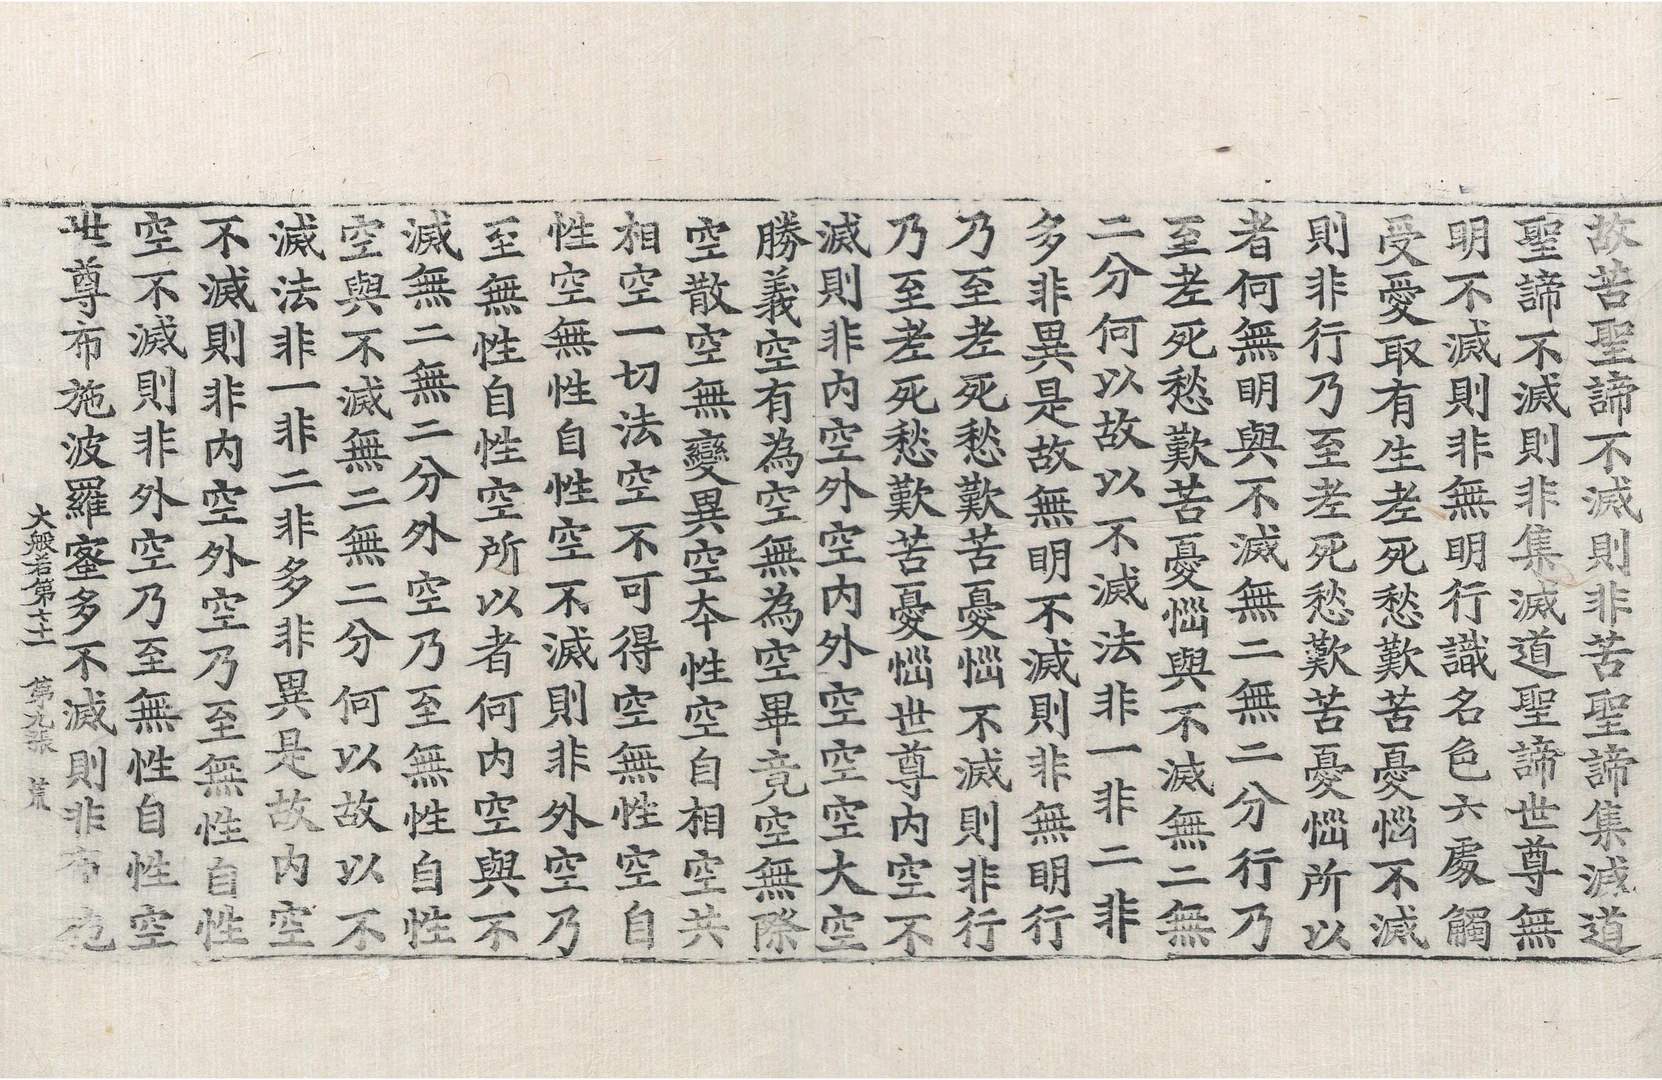 故苦聖諦不滅則非苦聖諦集滅道
聖諦不滅則非集滅道聖諦世尊無
明不滅則非無明行識名色六處觸
受愛取有生老死愁歎苦憂惱不滅
則非行乃至老死愁歎苦憂惱所以
者何無明與不滅無二無二分行乃
至老死愁歎苦憂惱與不滅無二無
二分何以故以不滅法非一非二非
多非異是故無明不滅則非無明行
乃至老死愁歎苦憂惱不滅則非行
乃至老死愁歎苦憂惱世尊内空不
滅則非内空外空内外空空空大空
勝義空有為空無為空畢竟空無際
空散空無變異空夲性空自相空共
相空一切法空不可得空無性空自
性空無性自性空不滅則非外空乃
至無性自性空所以者何内空與不
滅無二無二分外空乃至無性自性
空與不滅無二無二分何以故以不
滅法非一非二非多非異是故内空
不滅則非内空外空乃至無性自性
空不滅則非外空乃至無性自性空
世尊布施波羅蜜多不滅則非布施
大般若第七十一 第九張 荒